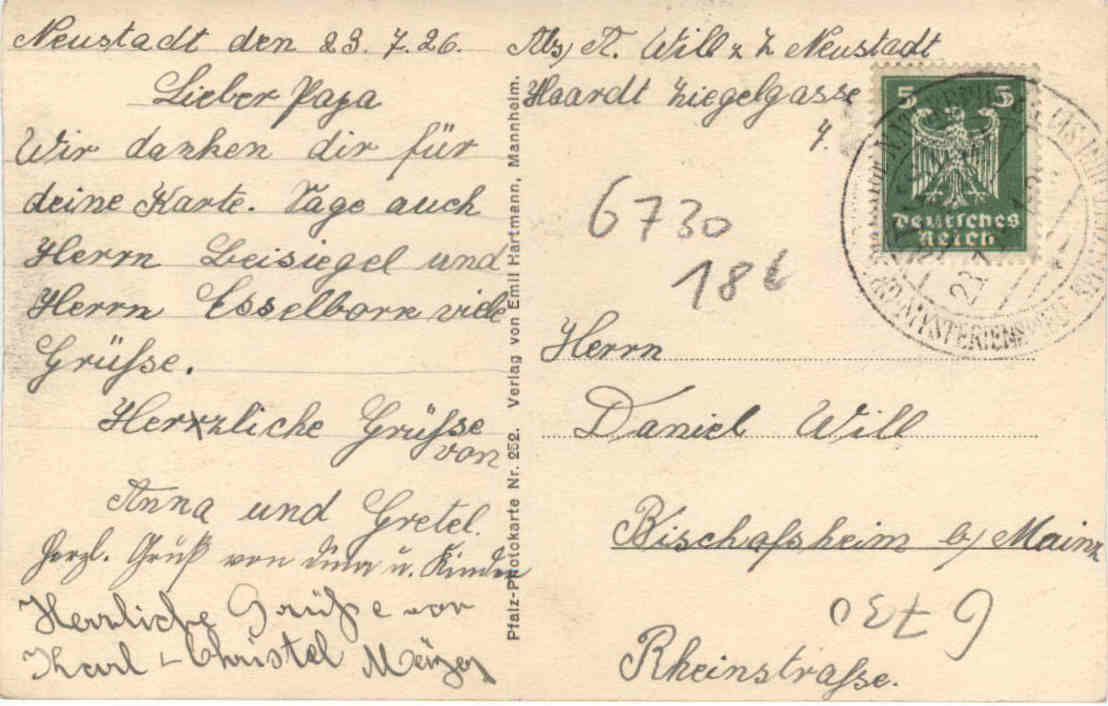 Neustadt den 23. 7. 26.
Lieber Papa
Wir danken dir für
deine Karte. Sage auch
Herrn Beisiegel und
Herrn Esselborn viele
Grüße.
Herzliche Grüße
von
Anna und Gretel.
Herzl. Gruß von u. Kinder
Herzliche Grüße von
Karl Christel
Pfalz-Photokarte Nr. 252. Verlag von Emil Hartmann, Mannheim.
Abs, A. Will z Z Neustadt
Haardt Ziegelgasse
4.
5 5
Deutsches
Reich
6730
186
Herrn
Daniel Will
Bischofsheim b, Mainz
Rheinstraße.